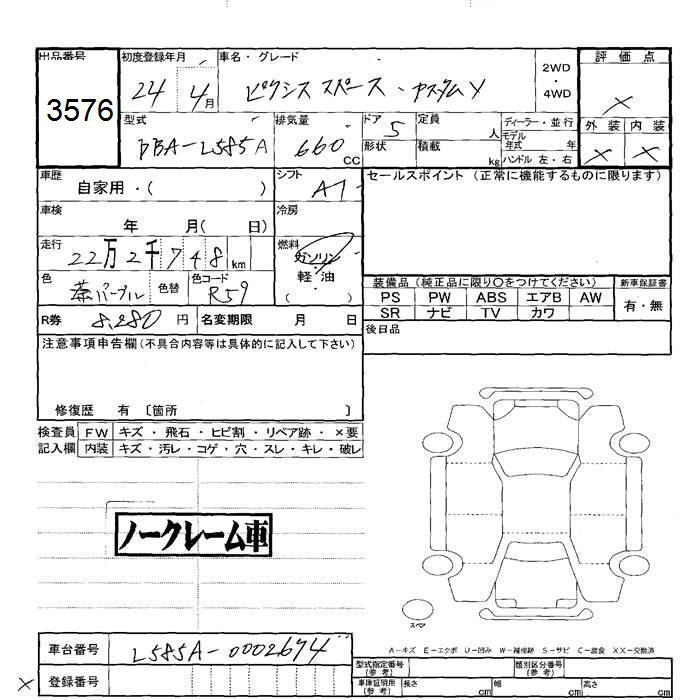 出品番号 初度登録年月 車名・グレード 2WD・4WD 評価点
3576 24 4月 ピクシス スペース・カスタムX ×
型式 排気量 ドア 定員 人 ディーラー・並行 外装 内装
DBA-L585A 660 CC 5 形状 積載 kg モデル年式 年 ハンドル 左・右 × ×
車歴 自家用・( ) シフト AT セールスポイント (正常に機能するものに限ります)
車検 年 月( 日) 冷房
走行 22万2千748km 燃料 ガソリン 軽・油 ( )
色 茶パープル 色替 色コード R59
装備品 (純正品に限り○をつけてください) 新車保証書
PS PW ABS エアB AW 有・無
SR ナビ TV カワ
R券 8,280円 名変期限 月 日 後日品
注意事項申告欄(不具合内容等は具体的に記入して下さい)
修復歴 有 〔箇所 〕
検査員 FW キズ・飛石・ヒビ割・リペア跡・×要
記入欄 内装 キズ・汚レ・コゲ・穴・スレ・キレ・破レ
ノークレーム車
スペア
A-キズ E-エクボ U-凹み W-補修跡 S-サビ C-腐食 XX-交換済
車台番号 L585A-0002674 型式指定番号(参考) 類別区分番号(参考)
× 登録番号 車庫証明用(参考) 長さ cm 幅 cm 高さ cm